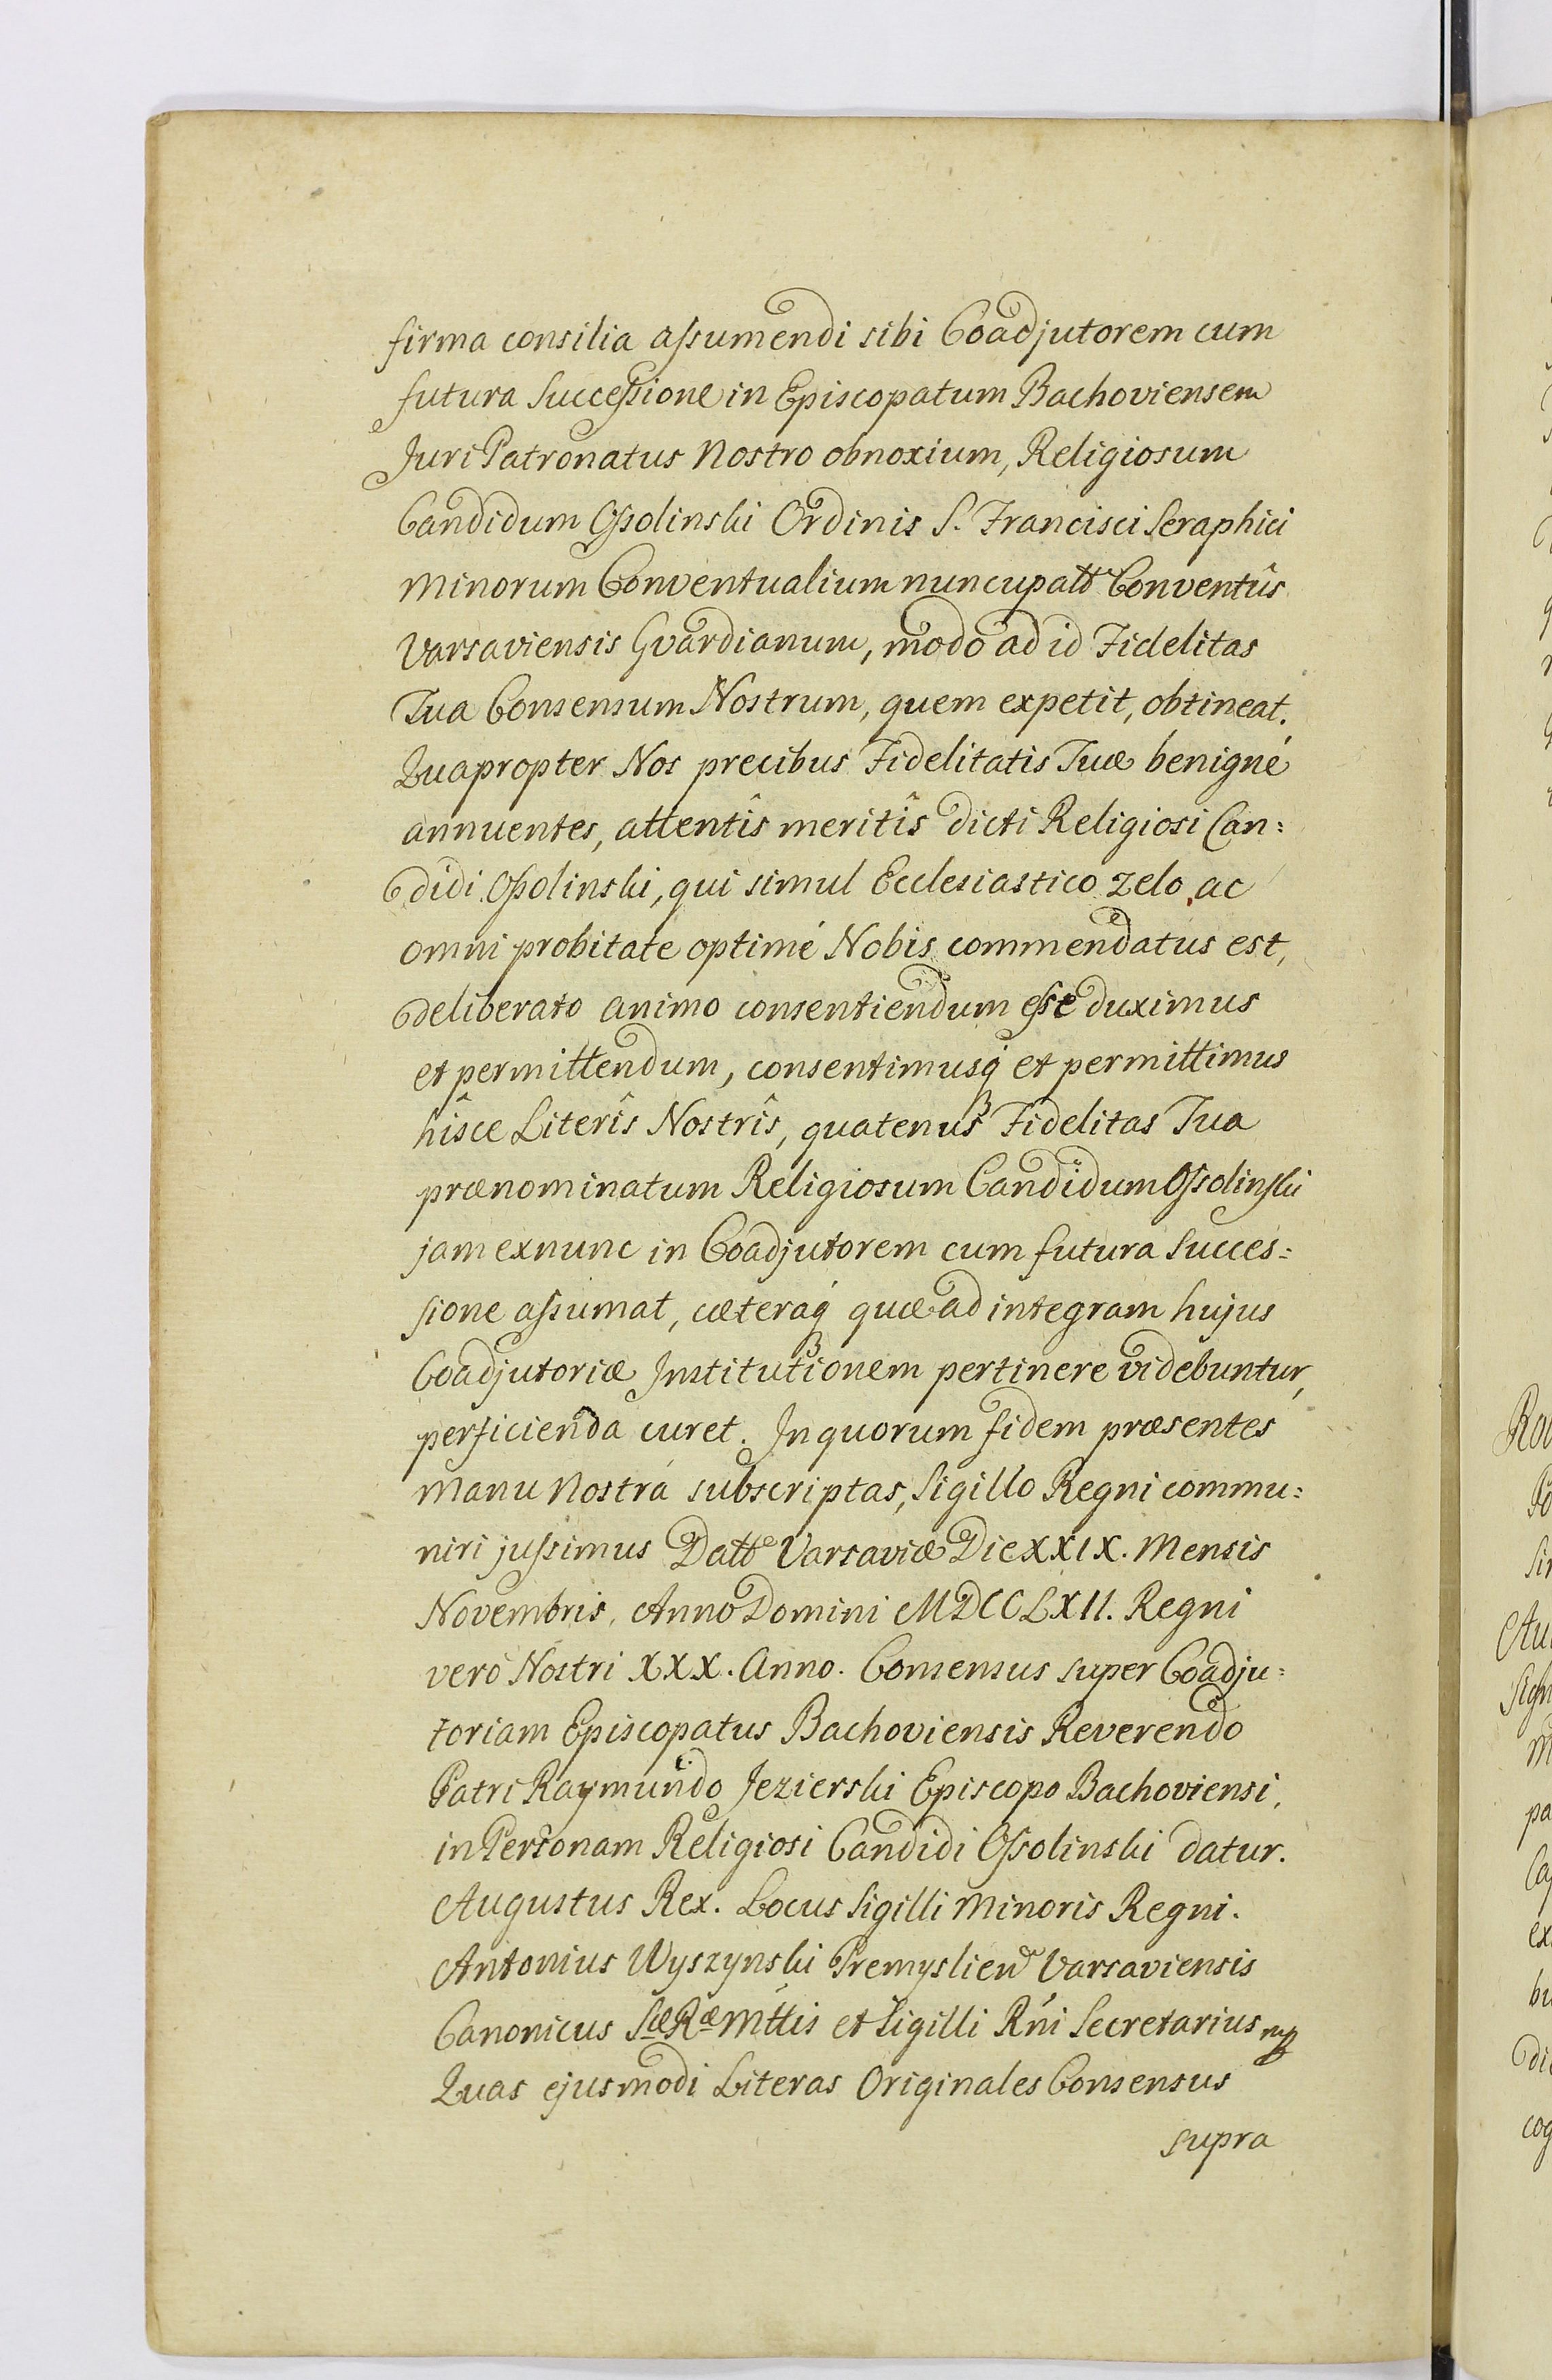 firma consilia assumendi sibi Coadjutorem cum
futura Successione in Episcopatum Bachoviensem
Juri Patronatus Nostro obnoxium, Religiosum
Candidum Ossolinski Ordinis S. Francisci Seraphici
Minorum Conventualium nuncupatt Conventûs
Varsaviensis Gvardianum, modo ad id Fidelitas
Tua Consensum Nostrum, quem expetit, obtineat.
Quapropter Nos precibus Fidelitatis Tuæ benigné
annuentes, attentîs meritîs dicti Religiosi Can:
didi Ossolinski, qui simul Ecclesiastico zelo, ac
omni probitate optimé Nobis commendatus est,
deliberato animo consentiendum esse duximus
et permittendum, consentimusq́ et permittimus
hîsce Literîs Nostrîs, quatenus Fidelitas Tua
prænominatum Religiosum Candidum Ossolinski
jam exnunc in Coadjutorem cum futura Succes:
sione assumat, cæteraq́ quæ ad integram hujus
Coadjutoriæ Institutionem pertinere videbuntur,
perficienda curet. In quorum fidem præsentes
Manu Nostrá subscriptas, Sigillo Regni commu:
niri jussimus Datt Varsaviæ Die XXIX. Mensis
Novembris, Anno Domini MDCCLXII. Regni
verò Nostri XXX. Anno. Consensus super Coadju:
toriam Episcopatus Bachoviensis Reverendo
Patri Raymundo Jezierski Episcopo Bachoviensi,
in Personam Religiosi Candidi Ossolinski datur.
Augustus Rex. Locus Sigilli Minoris Regni.
Antonius Wyszynski Premyslien Varsaviensis
Canonicus Sæ Ræ Mttis et Sigilli Rńi Secretarius mp
Quas ejusmodi Literas Originales Consensus
supra